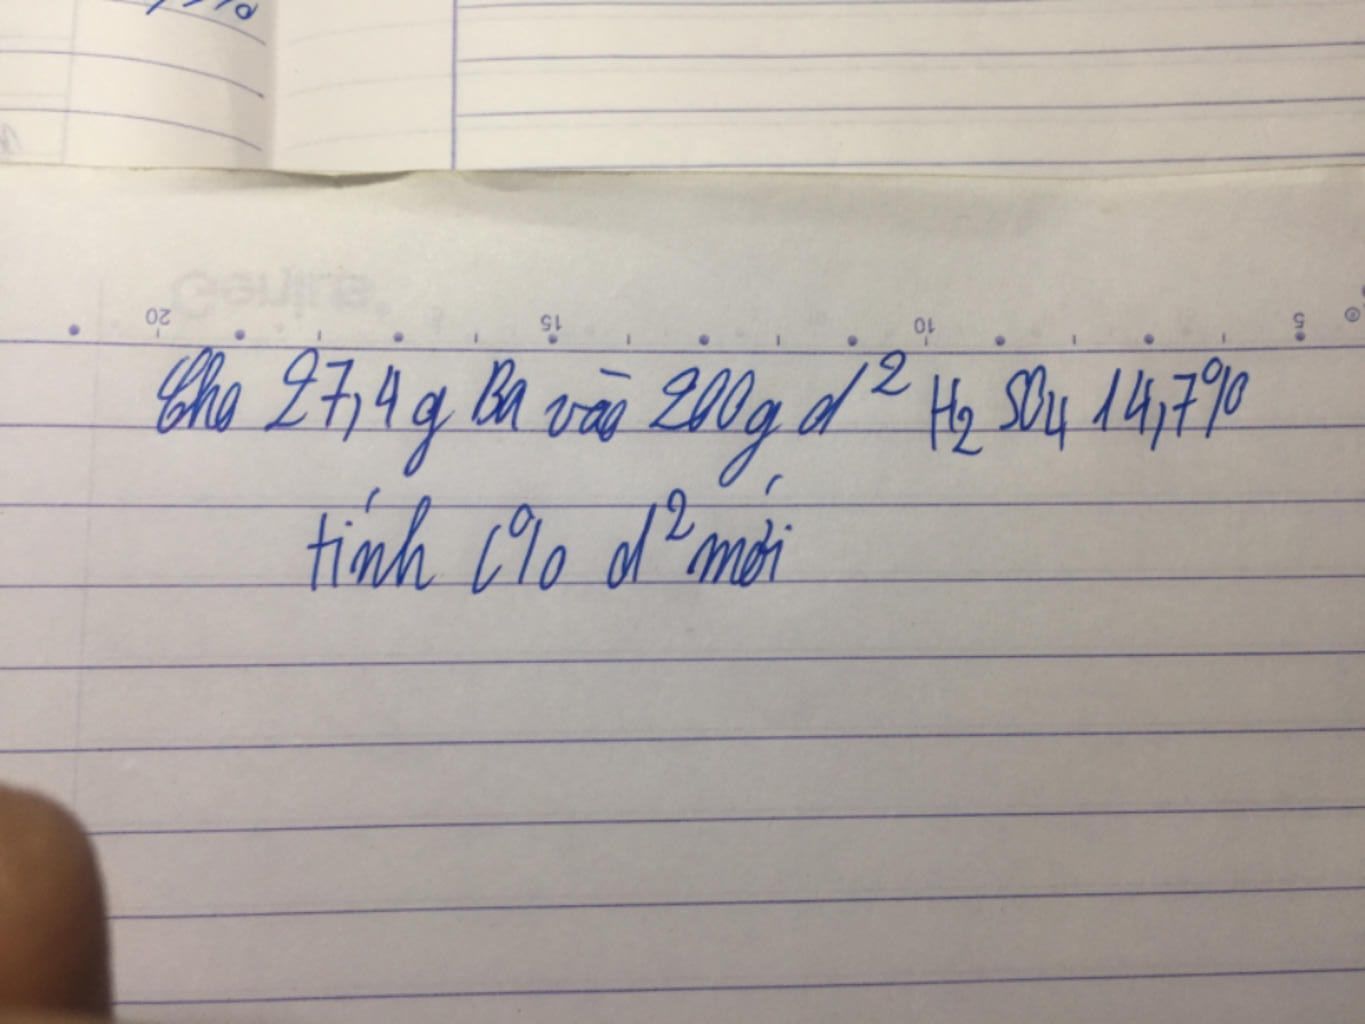 20 15 10 5
Cho 27,4g Ba vào 200g d² H₂SO₄ 14,7%
tính C% d² mới